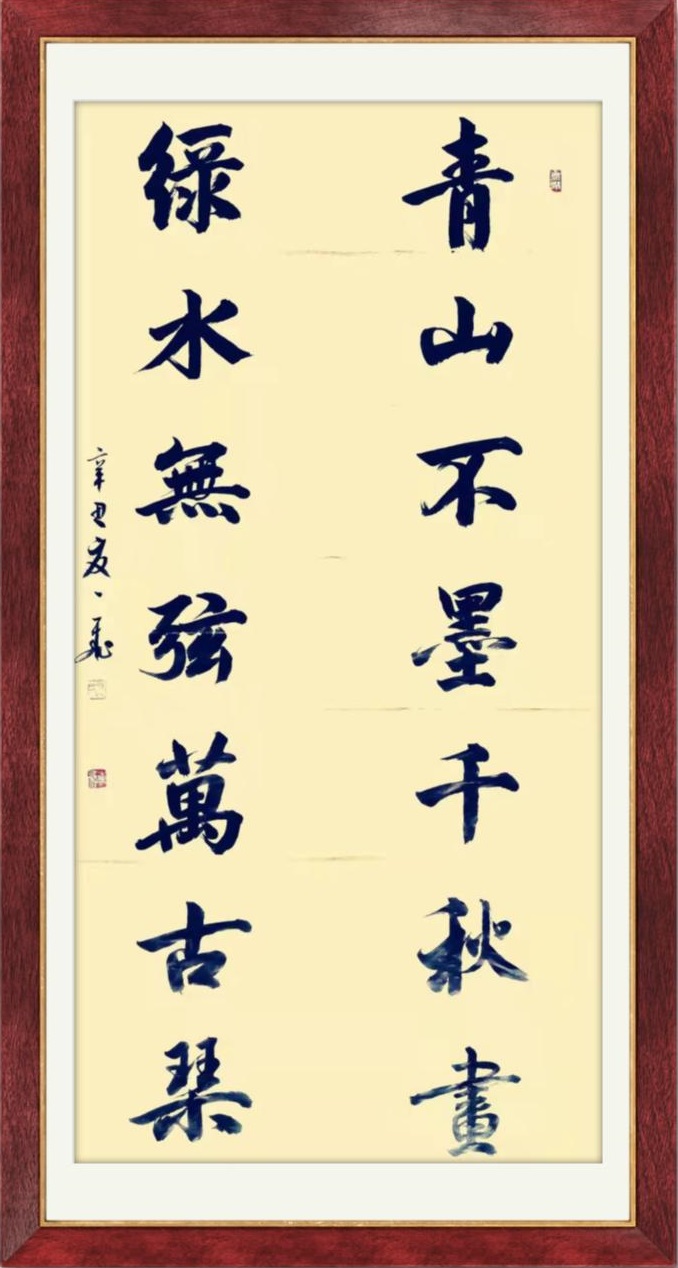 青山不墨千秋畫
綠水無弦萬古琴
辛丑夏一飛